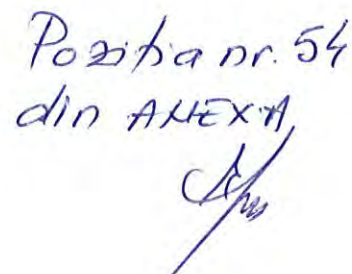 Poziția nr. 54
din ANEXA